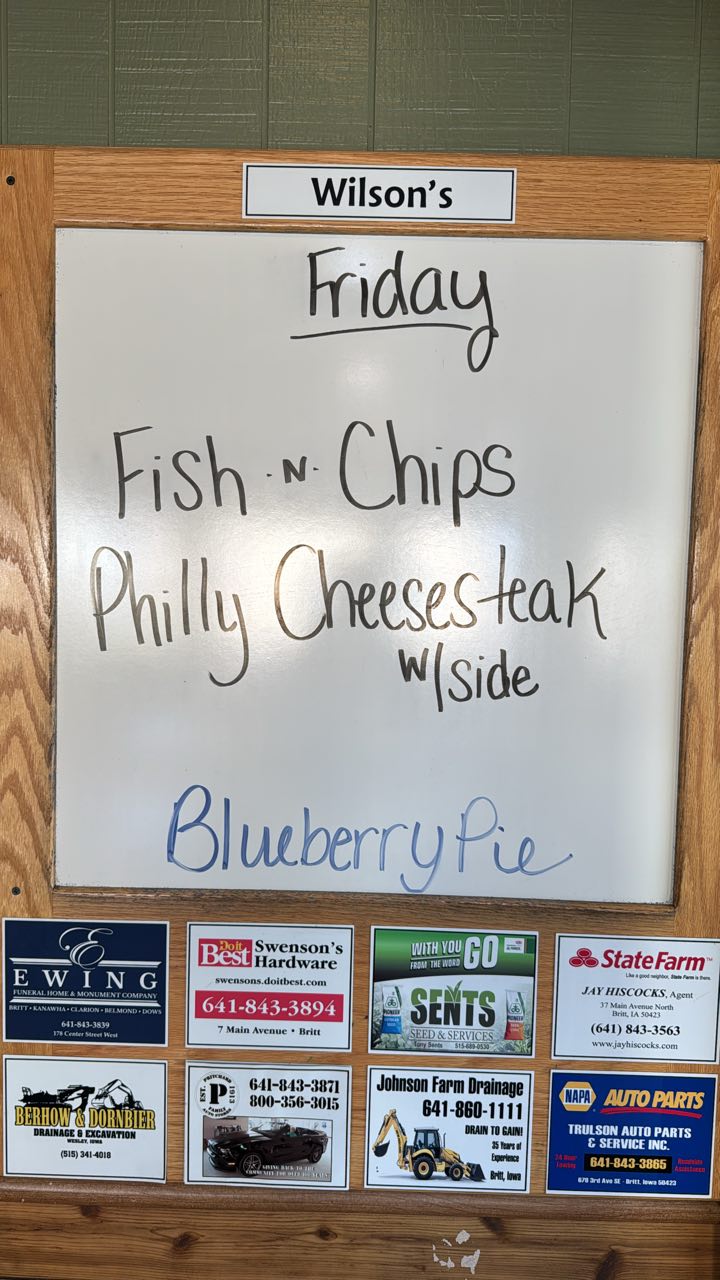 Wilson's
Friday
Fish -N- Chips
Philly Cheesesteak
w/side
Blueberry Pie
E
EWING
FUNERAL HOME & MONUMENT COMPANY
BRITT • KANAWHA • CLARION • BELMOND • DOWS
641-843-3839
178 Center Street West
Do it Best
Swenson's
Hardware
swensons.doitbest.com
641-843-3894
7 Main Avenue • Britt
WITH YOU
FROM THE WORD GO
SENTS
SEED & SERVICES
Tony Sents 515-689-0530
StateFarm™
Like a good neighbor, State Farm is there.
JAY HISCOCKS, Agent
37 Main Avenue North
Britt, IA 50423
(641) 843-3563
www.jayhiscocks.com
BERHOW & DORNBIER
DRAINAGE & EXCAVATION
WESLEY, IOWA
(515) 341-4018
PRITCHARD
EST. P 1913
FAMILY
AUTO STORES
641-843-3871
800-356-3015
GIVING BACK TO THE
COMMUNITY FOR OVER 100 YEARS!
Johnson Farm Drainage
641-860-1111
DRAIN TO GAIN!
35 Years of
Experience
Britt, Iowa
NAPA AUTO PARTS
TRULSON AUTO PARTS
& SERVICE INC.
24 Hour
Towing
641-843-3865
Roadside
Assistance
678 3rd Ave SE - Britt, Iowa 50423